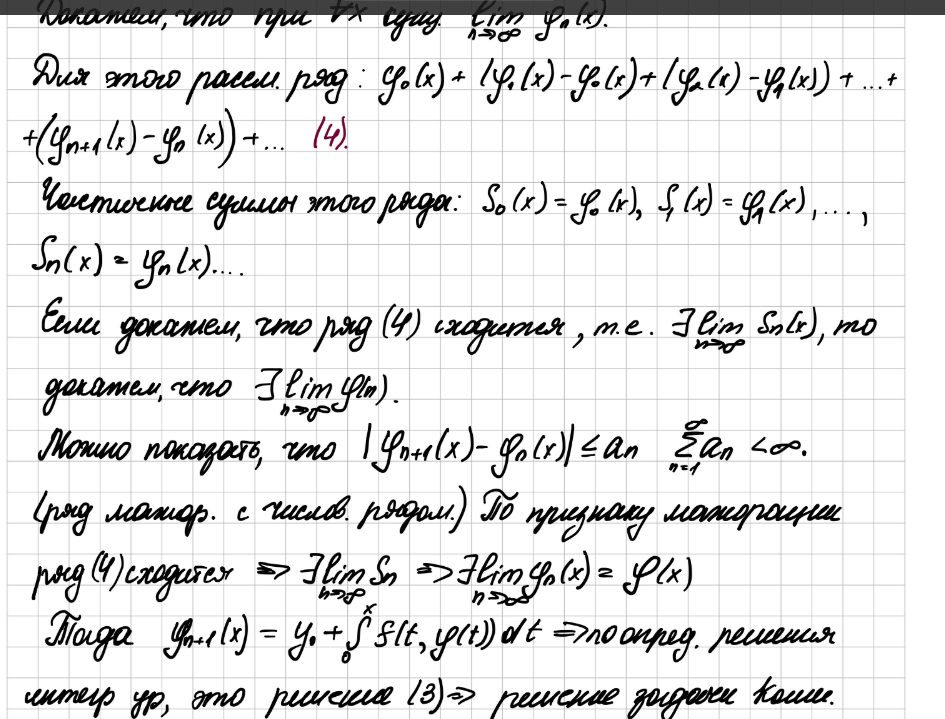 Докажем, что при ∀x сущ. lim_{n→∞} φ_n(x).
Для этого рассм. ряд: φ_0(x) + (φ_1(x) - φ_0(x) + (φ_2(x) - φ_1(x)) + ... +
+ (φ_{n+1}(x) - φ_n(x)) + ... (4).
Частичные суммы этого ряда: S_0(x) = φ_0(x), S_1(x) = φ_1(x), ...,
S_n(x) = φ_n(x)....
Если докажем, что ряд (4) сходится, т.е. ∃ lim_{n→∞} S_n(x), то
докажем, что ∃ lim_{n→∞} φ(n).
Можно показать, что |φ_{n+1}(x) - φ_n(x)| ≤ a_n ∑_{n=1}^{∞} a_n < ∞.
(ряд мажор. с числов. рядом.) По признаку мажорации
ряд (4) сходится => ∃ lim_{n→∞} S_n => ∃ lim_{n→∞} φ_n(x) = φ(x)
Тогда φ_{n+1}(x) = y_0 + ∫_0^x f(t, φ(t)) dt => по опред. решения
интегр ур, это решение (3) => решение задачи Коши.